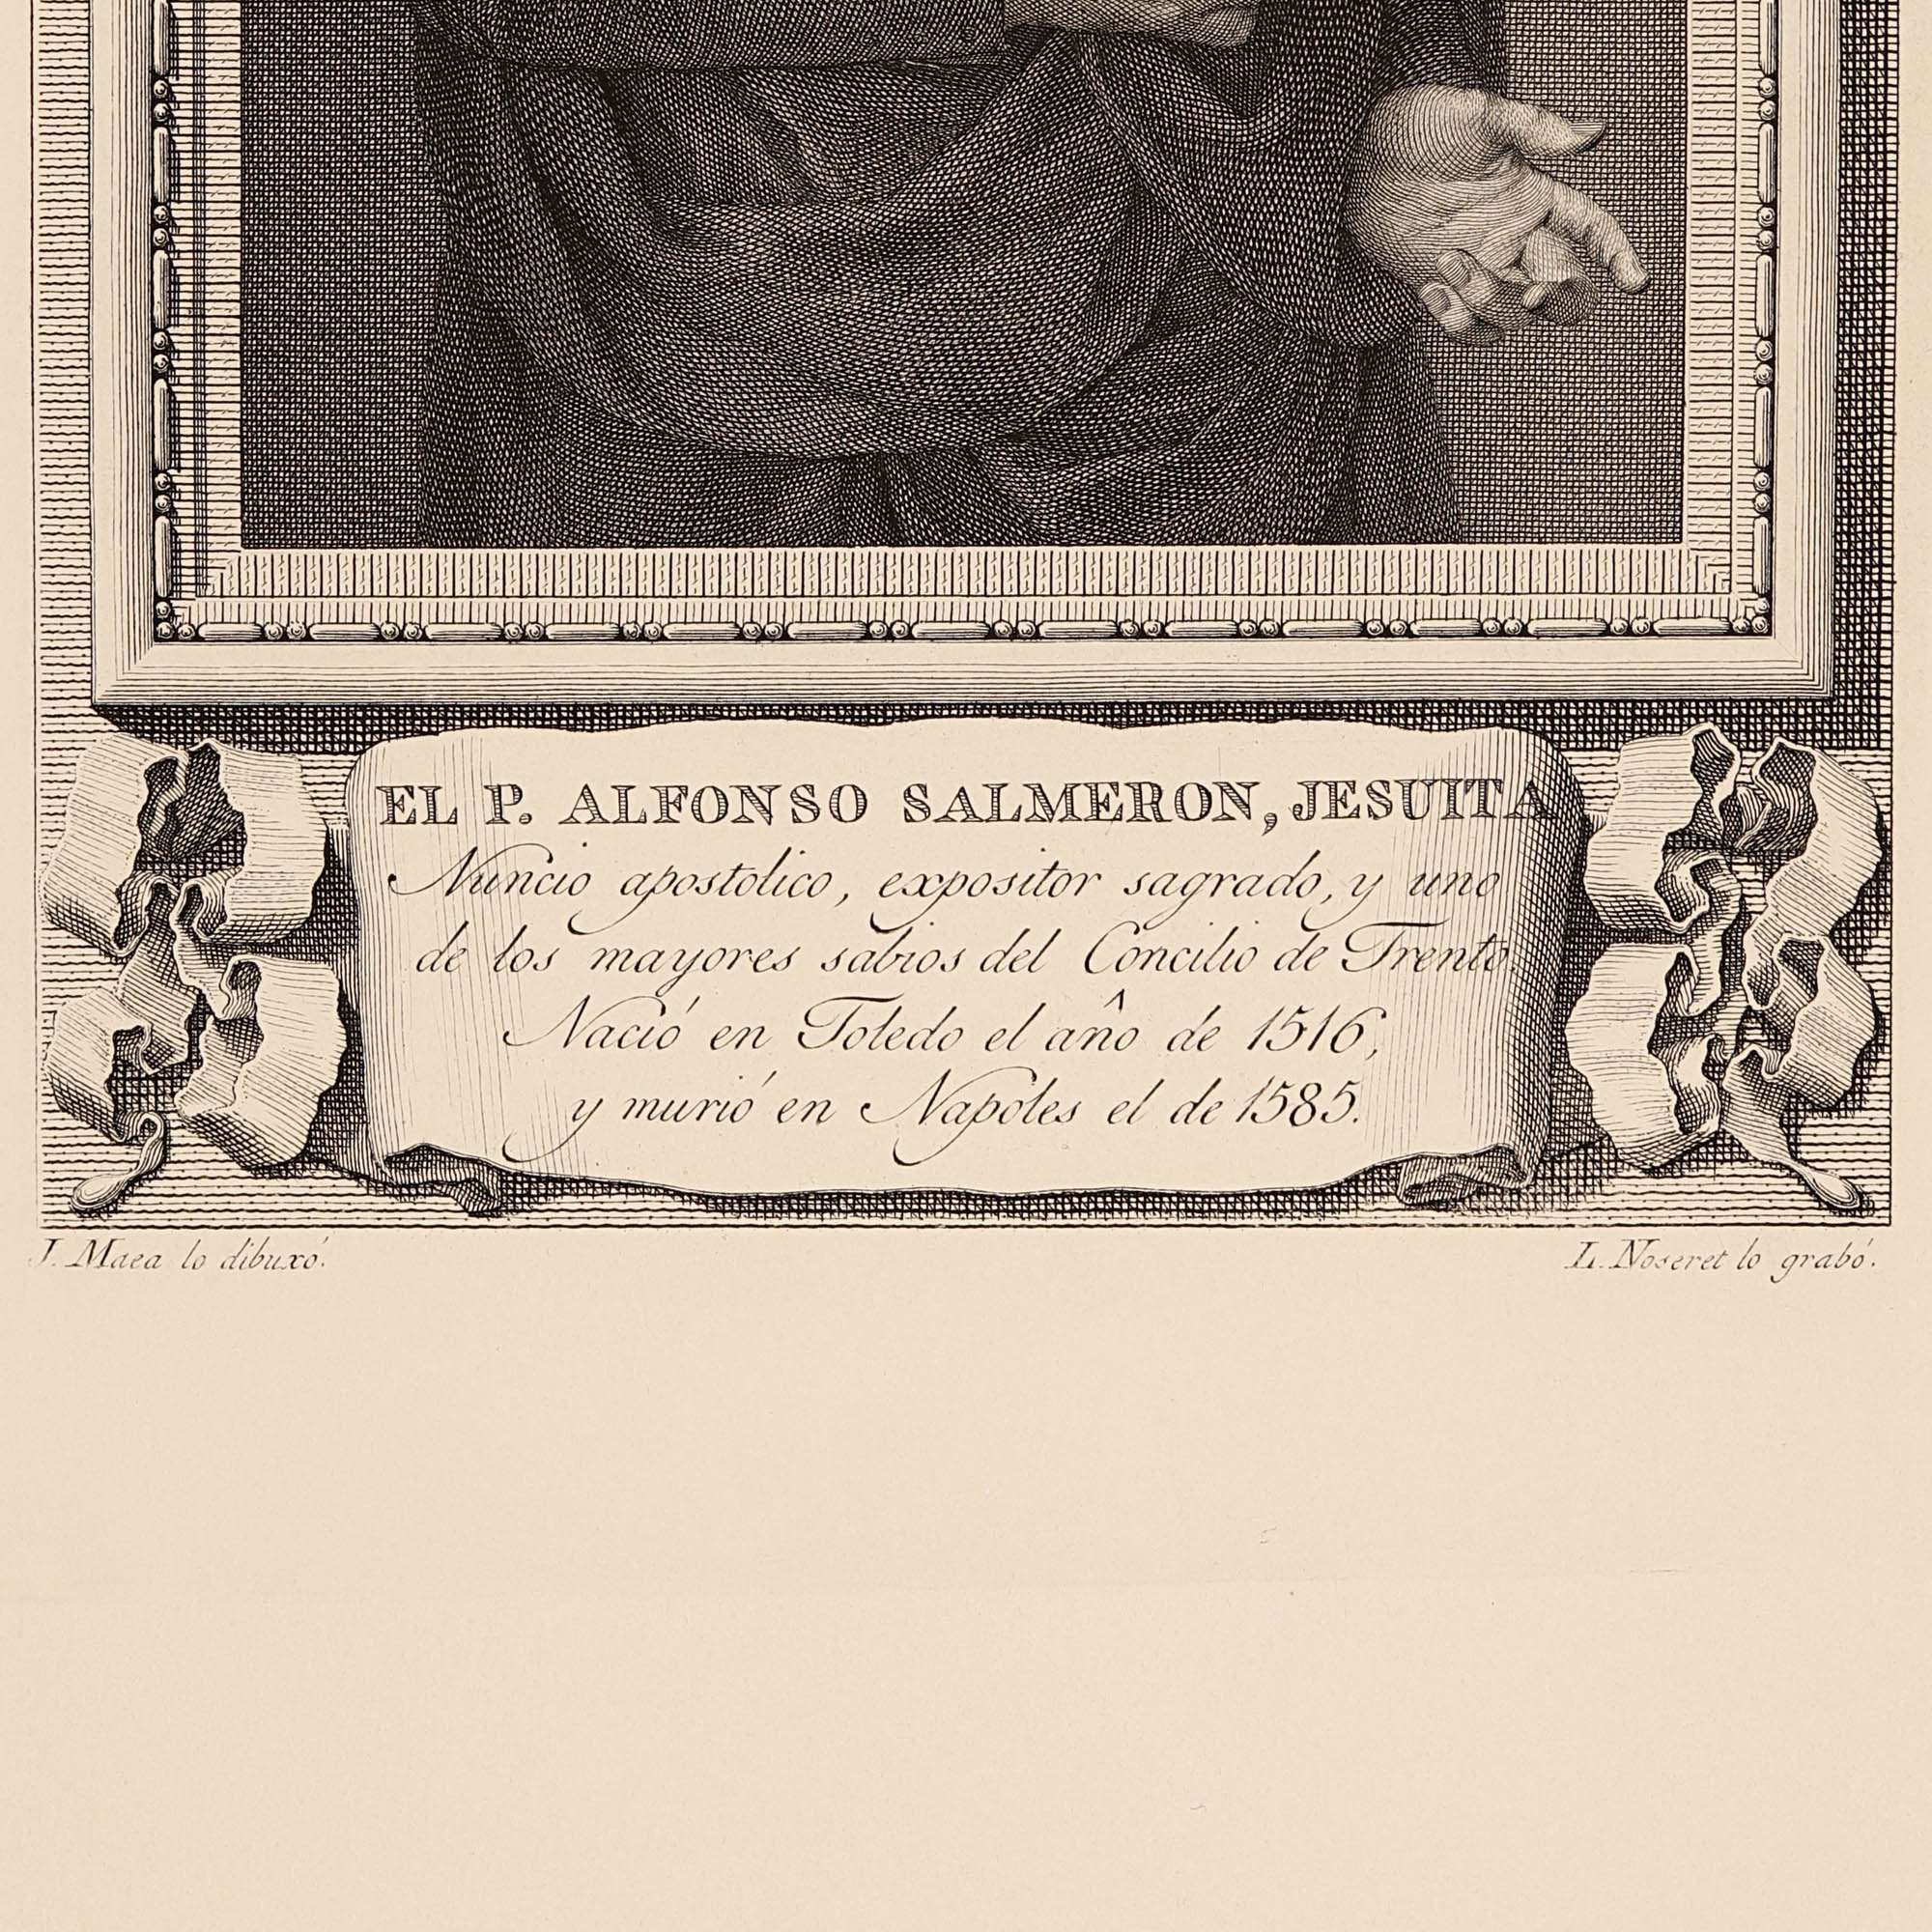 EL P. ALFONSO SALMERON, JESUITA
Nuncio apostolico, expositor sagrado, y uno
de los mayores sabios del Concilio de Trento.
Nació en Toledo el año de 1516,
y murió en Napoles el de 1585.
J. Maea lo dibuxó.
L. Noseret lo grabó.